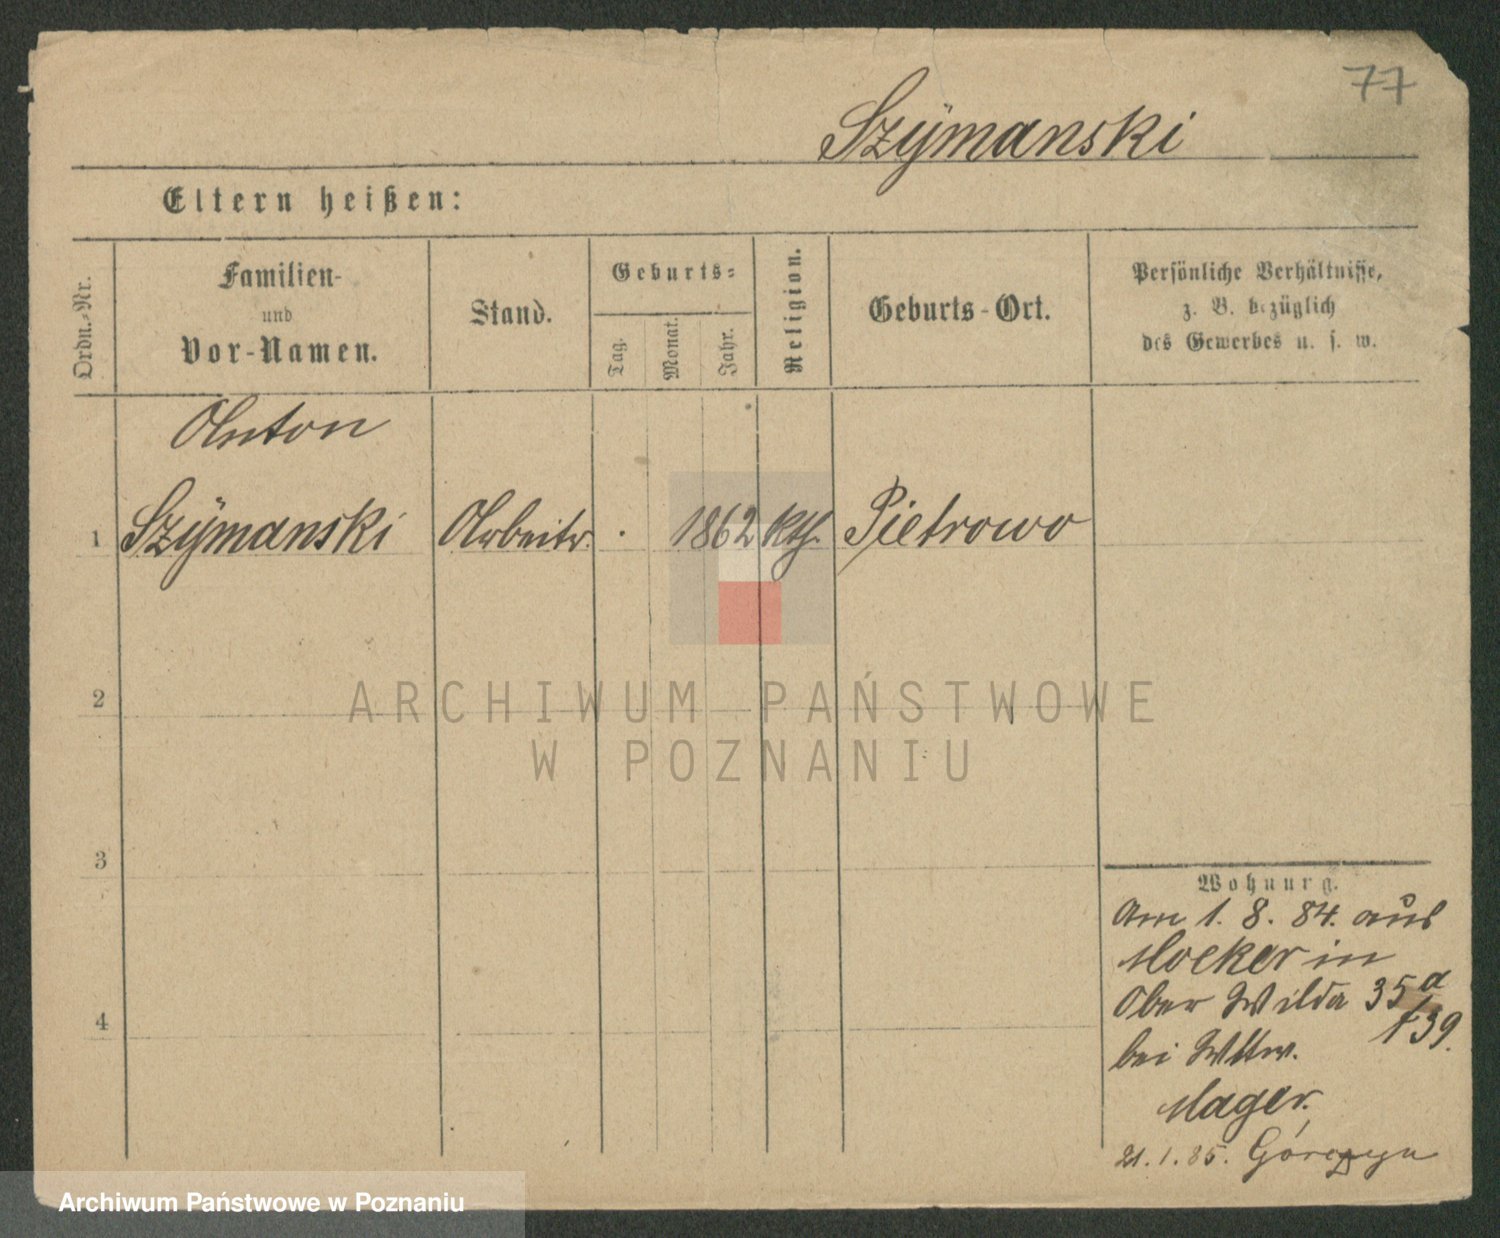 77
Szÿmanski
Eltern heißen:
Ordn.-Nr.
Familien-
und
Vor-Namen.
Stand.
Geburts-
Tag.
Monat.
Jahr.
Religion.
Geburts-Ort.
Persönliche Verhältnisse,
z. B. bezüglich
des Gewerbes u. s. w.
Anton
1 Szÿmanski Arbeitr. . 1862 kth. Pietrowo
2
3
4
Wohnung.
Am 1. 8. 84. aus
Mocker in
Ober Wilda 35a
f39.
bei Wttw.
Mager.
21.1.85. Górczyn
ARCHIWUM PAŃSTWOWE
W POZNANIU
Archiwum Państwowe w Poznaniu